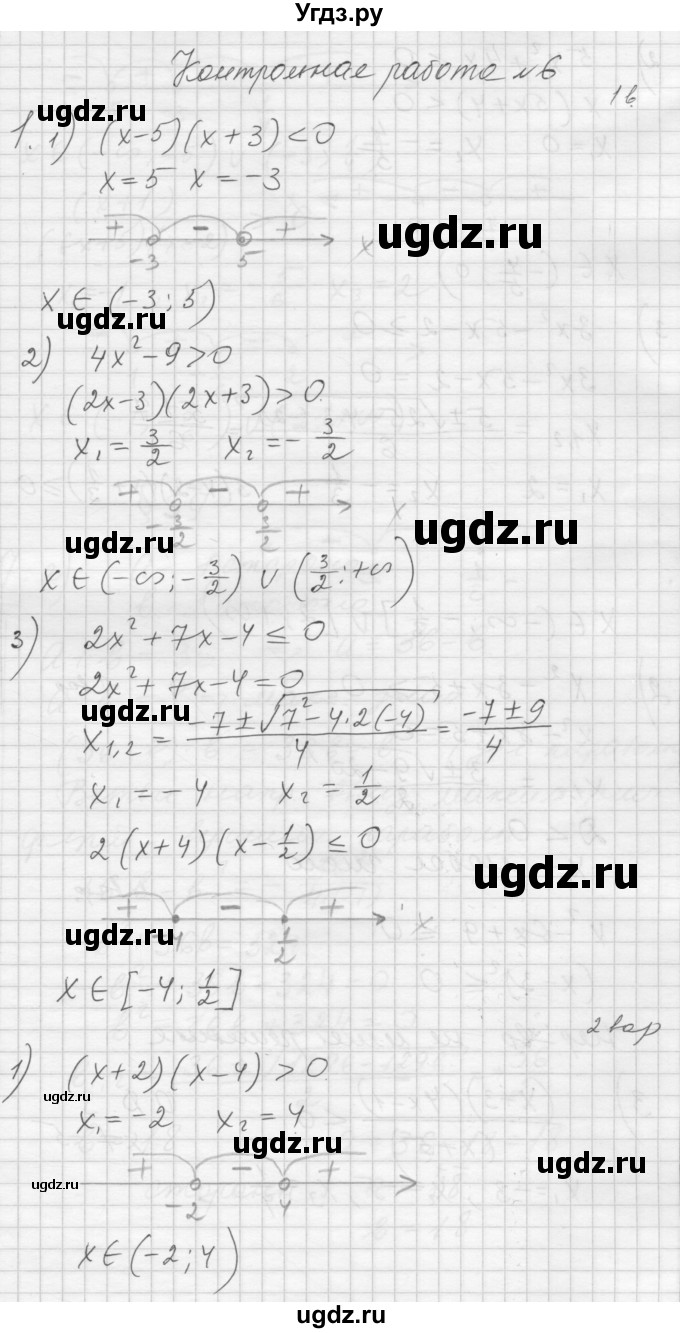 Угдз.ру
Контрольная работа №6
1в.
ugdz.ru
1. 1) (x-5)(x+3)<0
x=5 x=-3
+ - +
-3 5 x
ugdz.ru
x ∈ (-3; 5)
ugdz.ru
2) 4x²-9>0
(2x-3)(2x+3)>0
x₁=3/2 x₂=-3/2
+ - +
-3/2 3/2 x
ugdz.ru
ugdz.ru
x ∈ (-∞; -3/2) ∪ (3/2; +∞)
3) 2x²+7x-4≤0
2x²+7x-4=0
ugdz.ru
x₁,₂ = (-7±√(7²-4·2(-4)))/4 = (-7±9)/4
x₁=-4 x₂=1/2
2(x+4)(x-1/2)≤0
ugdz.ru
+ - +
-4 1/2 x
ugdz.ru
x ∈ [-4; 1/2]
2 вар
1) (x+2)(x-4)>0
ugdz.ru
x₁=-2 x₂=4
ugdz.ru
ugdz.ru
+ - +
-2 4
ugdz.ru
x ∈ (-2; 4)
ugdz.ru